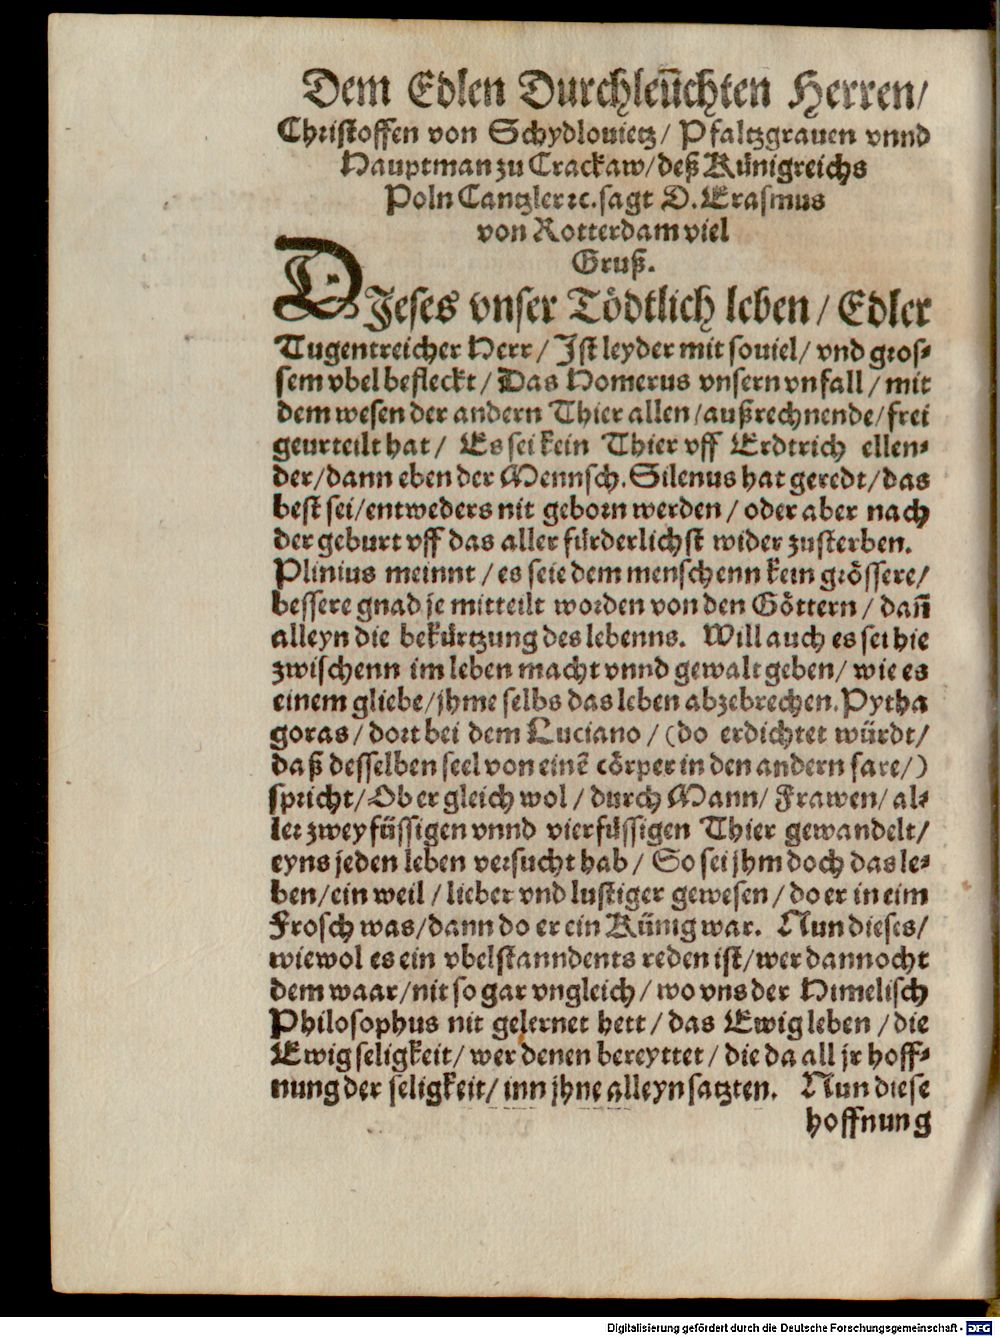 Dem Edlen Durchleūchten Herren/
Christoffen von Schydlouietz/ Pfaltzgrauen vnnd
Hauptman zu Crackaw/ deß Künigreichs
Poln Cantzler ꝛc. sagt D. Erasmus
von Rotterdam viel
Gruß.
DJeses vnser Tödtlich leben/ Edler
Tugentreicher Herr/ Jst leyder mit souiel/ vnd gros⸗
sem vbel befleckt/ Das Homerus vnsern vnfall/ mit
dem wesen der andern Thier allen/ außrechnende/ frei
geurteilt hat/ Es sei kein Thier vff Erdtrich ellen⸗
der/ dann eben der Mennsch. Silenus hat geredt/ das
best sei/ entweders nit geborn werden/ oder aber nach
der geburt vff das aller fürderlichst wider zusterben.
Plinius meinnt/ es seie dem menschenn kein grössere/
bessere gnad je mitteilt worden von den Göttern/ dañ
alleyn die bekürtzung des lebenns. Will auch es sei hie
zwischenn im leben macht vnnd gewalt geben/ wie es
einem gliebe/ jhme selbs das leben abzebrechen. Pytha
goras/ dort bei dem Luciano/ (do erdichtet würdt/
daß desselben seel von einē cörper in den andern fare/)
spricht/ Ob er gleich wol/ durch Mann/ Frawen/ al⸗
ler zweyfüssigen vnnd vierfüssigen Thier gewandelt/
eyns jeden leben versucht hab/ So sei jhm doch das le⸗
ben/ ein weil/ lieber vnd lustiger gewesen/ do er in eim
Frosch was/ dann do er ein Künig war. Nun dieses/
wiewol es ein vbelstanndents reden ist/ wer dannocht
dem waar/ nit so gar vngleich/ wo vns der Himelisch
Philosophus nit gelernet hett/ das Ewig leben/ die
Ewig seligkeit/ wer denen bereyttet/ die da all jr hoff⸗
nung der seligkeit/ inn jhne alleyn satzten. Nun diese
hoffnung
Digitalisierung gefördert durch die Deutsche Forschungsgemeinschaft - DFG